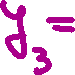 y₃=